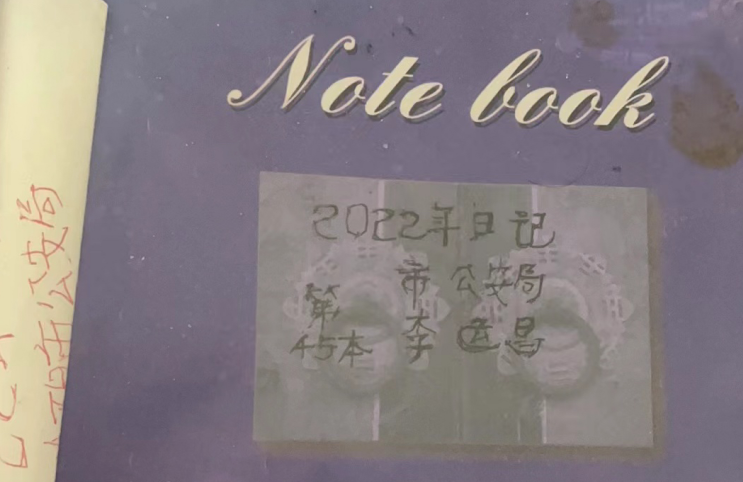 Note book
2022年日记
市公安局
第
45本 李运昌
公安局